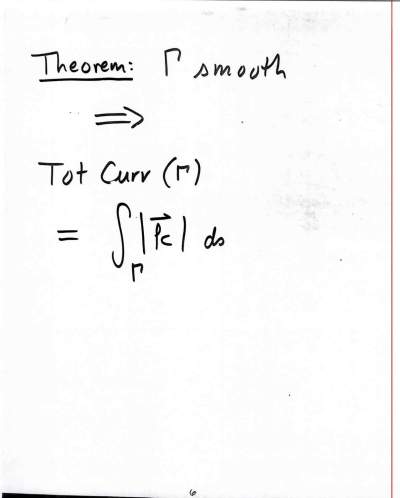 Theorem: Γ smooth
⟹
Tot Curr (Γ)
= ∫_Γ |k⃗| ds
6